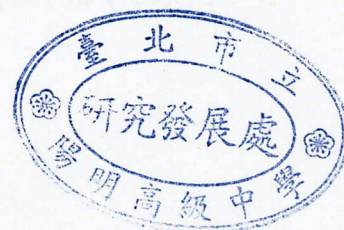 臺北市立
研究發展處
陽明高級中學